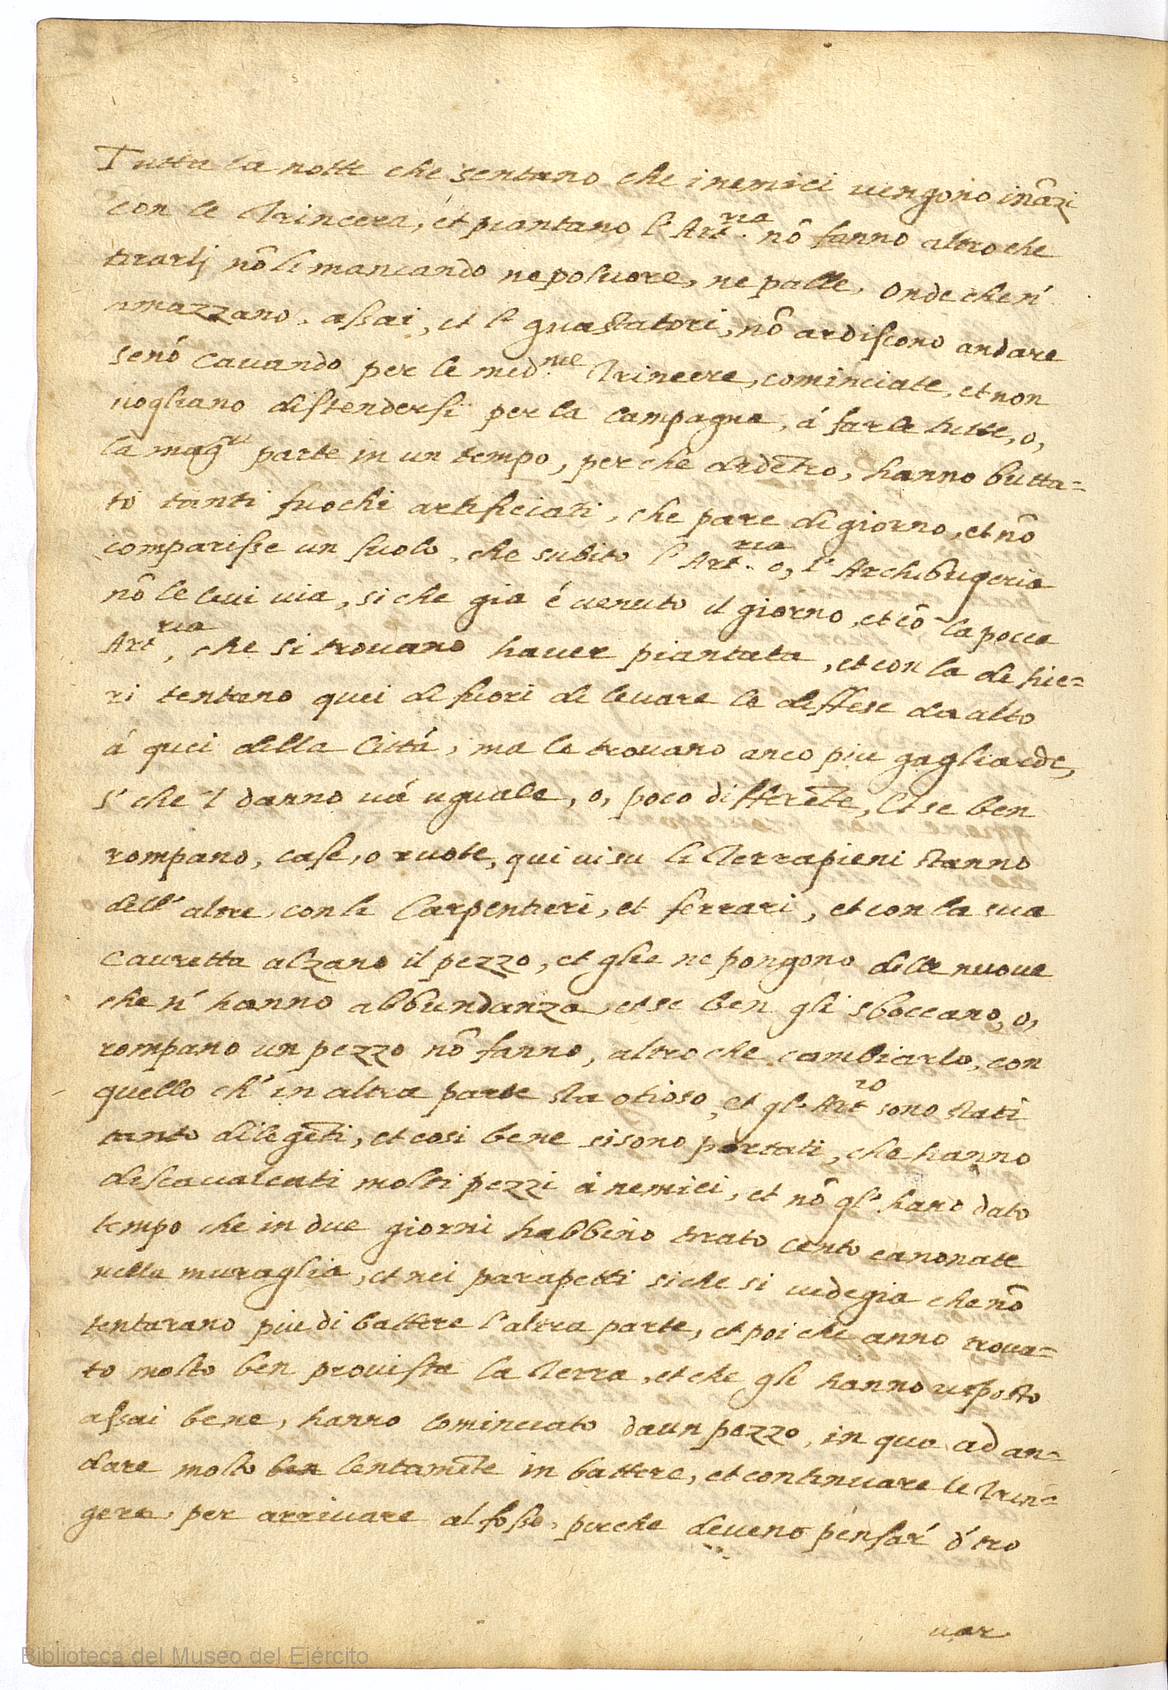 Tutta la notte che sentano che i nemici vengono inãzi
con le Trincera, et piantano l'Art.ria nõ fanno altro che
tirarli nõ li mancando ne poluore, ne palle, Onde che n'
amazzano, assai, et li guastatori, nõ ardiscono andare
senó cauando per le med.me Trincere, cominciate, et non
uogliano distendersi per la Campagna, á farle tutte, o,
la mag.r parte in un tempo, perche didẽtro, hanno butta=
to tanti fuochi artificiati, che pare di giorno, et nõ
comparisse un suolo, che subito l'Art.ria o, l'Archibugeria
nõ le leui uia, si che gia é uenuto il giorno, et cõ la pocca
Art.ria, che si trouano hauer piantata, et con la di hie=
ri tentano quei di fuori di leuare le diffese da alto
á quei della Cittá, ma le trouano anco piu gagliarde,
s' che 'l danno uá uguale, o, poco differẽte, Et se ben
rompano, casse, o ruote, quiui su li Terrapieni stanno
dell' altre, con li Carpentieri, et ferrari, et con la sua
Cauretta alzano il pezzo, et glie ne pongono delle nuoue
che n' hanno abbundanza, et se ben gli sboccano, o,
rompano un pezzo nõ fanno, altro che cambiarlo, con
quello ch' in altra parte sta otioso, et gl'Art.ro sono stati
tanto diligẽti, et cosi bene si sono portati, che hanno
discaualcati molti pezzi á nemici, et nõ gl' hano dato
tempo che in due giorni habbino trato cento canonate
nella muraglia, et nei parapetti si che si uede gia che nõ
tentarano piu di battere l'altra parte, et poi che anno troua=
to molto ben prouista la Terra, et che gli hanno risposto
assai bene, hanno cominciato da un pezzo, in qua ad an=
dare molto ben lentamẽte in battere, et continuare le Trin=
gere, per arriuare al fosso, perche deueno pensar' d' tro
uar
Biblioteca del Museo del Ejército